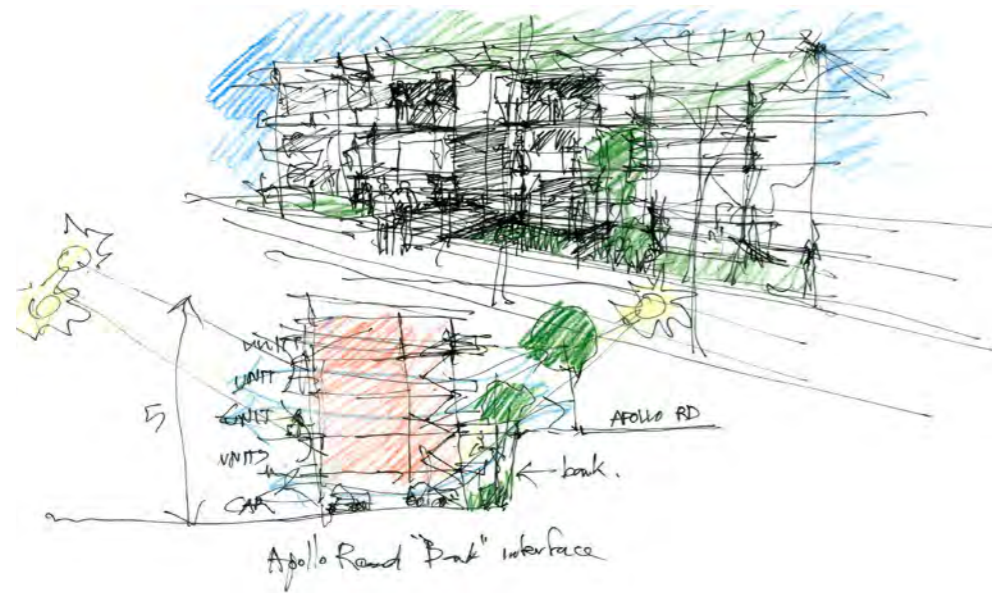 UNIT
UNIT
UNIT
UNITS
CAR
5
APOLLO RD
← bank.
Apollo Road "Bank" interface